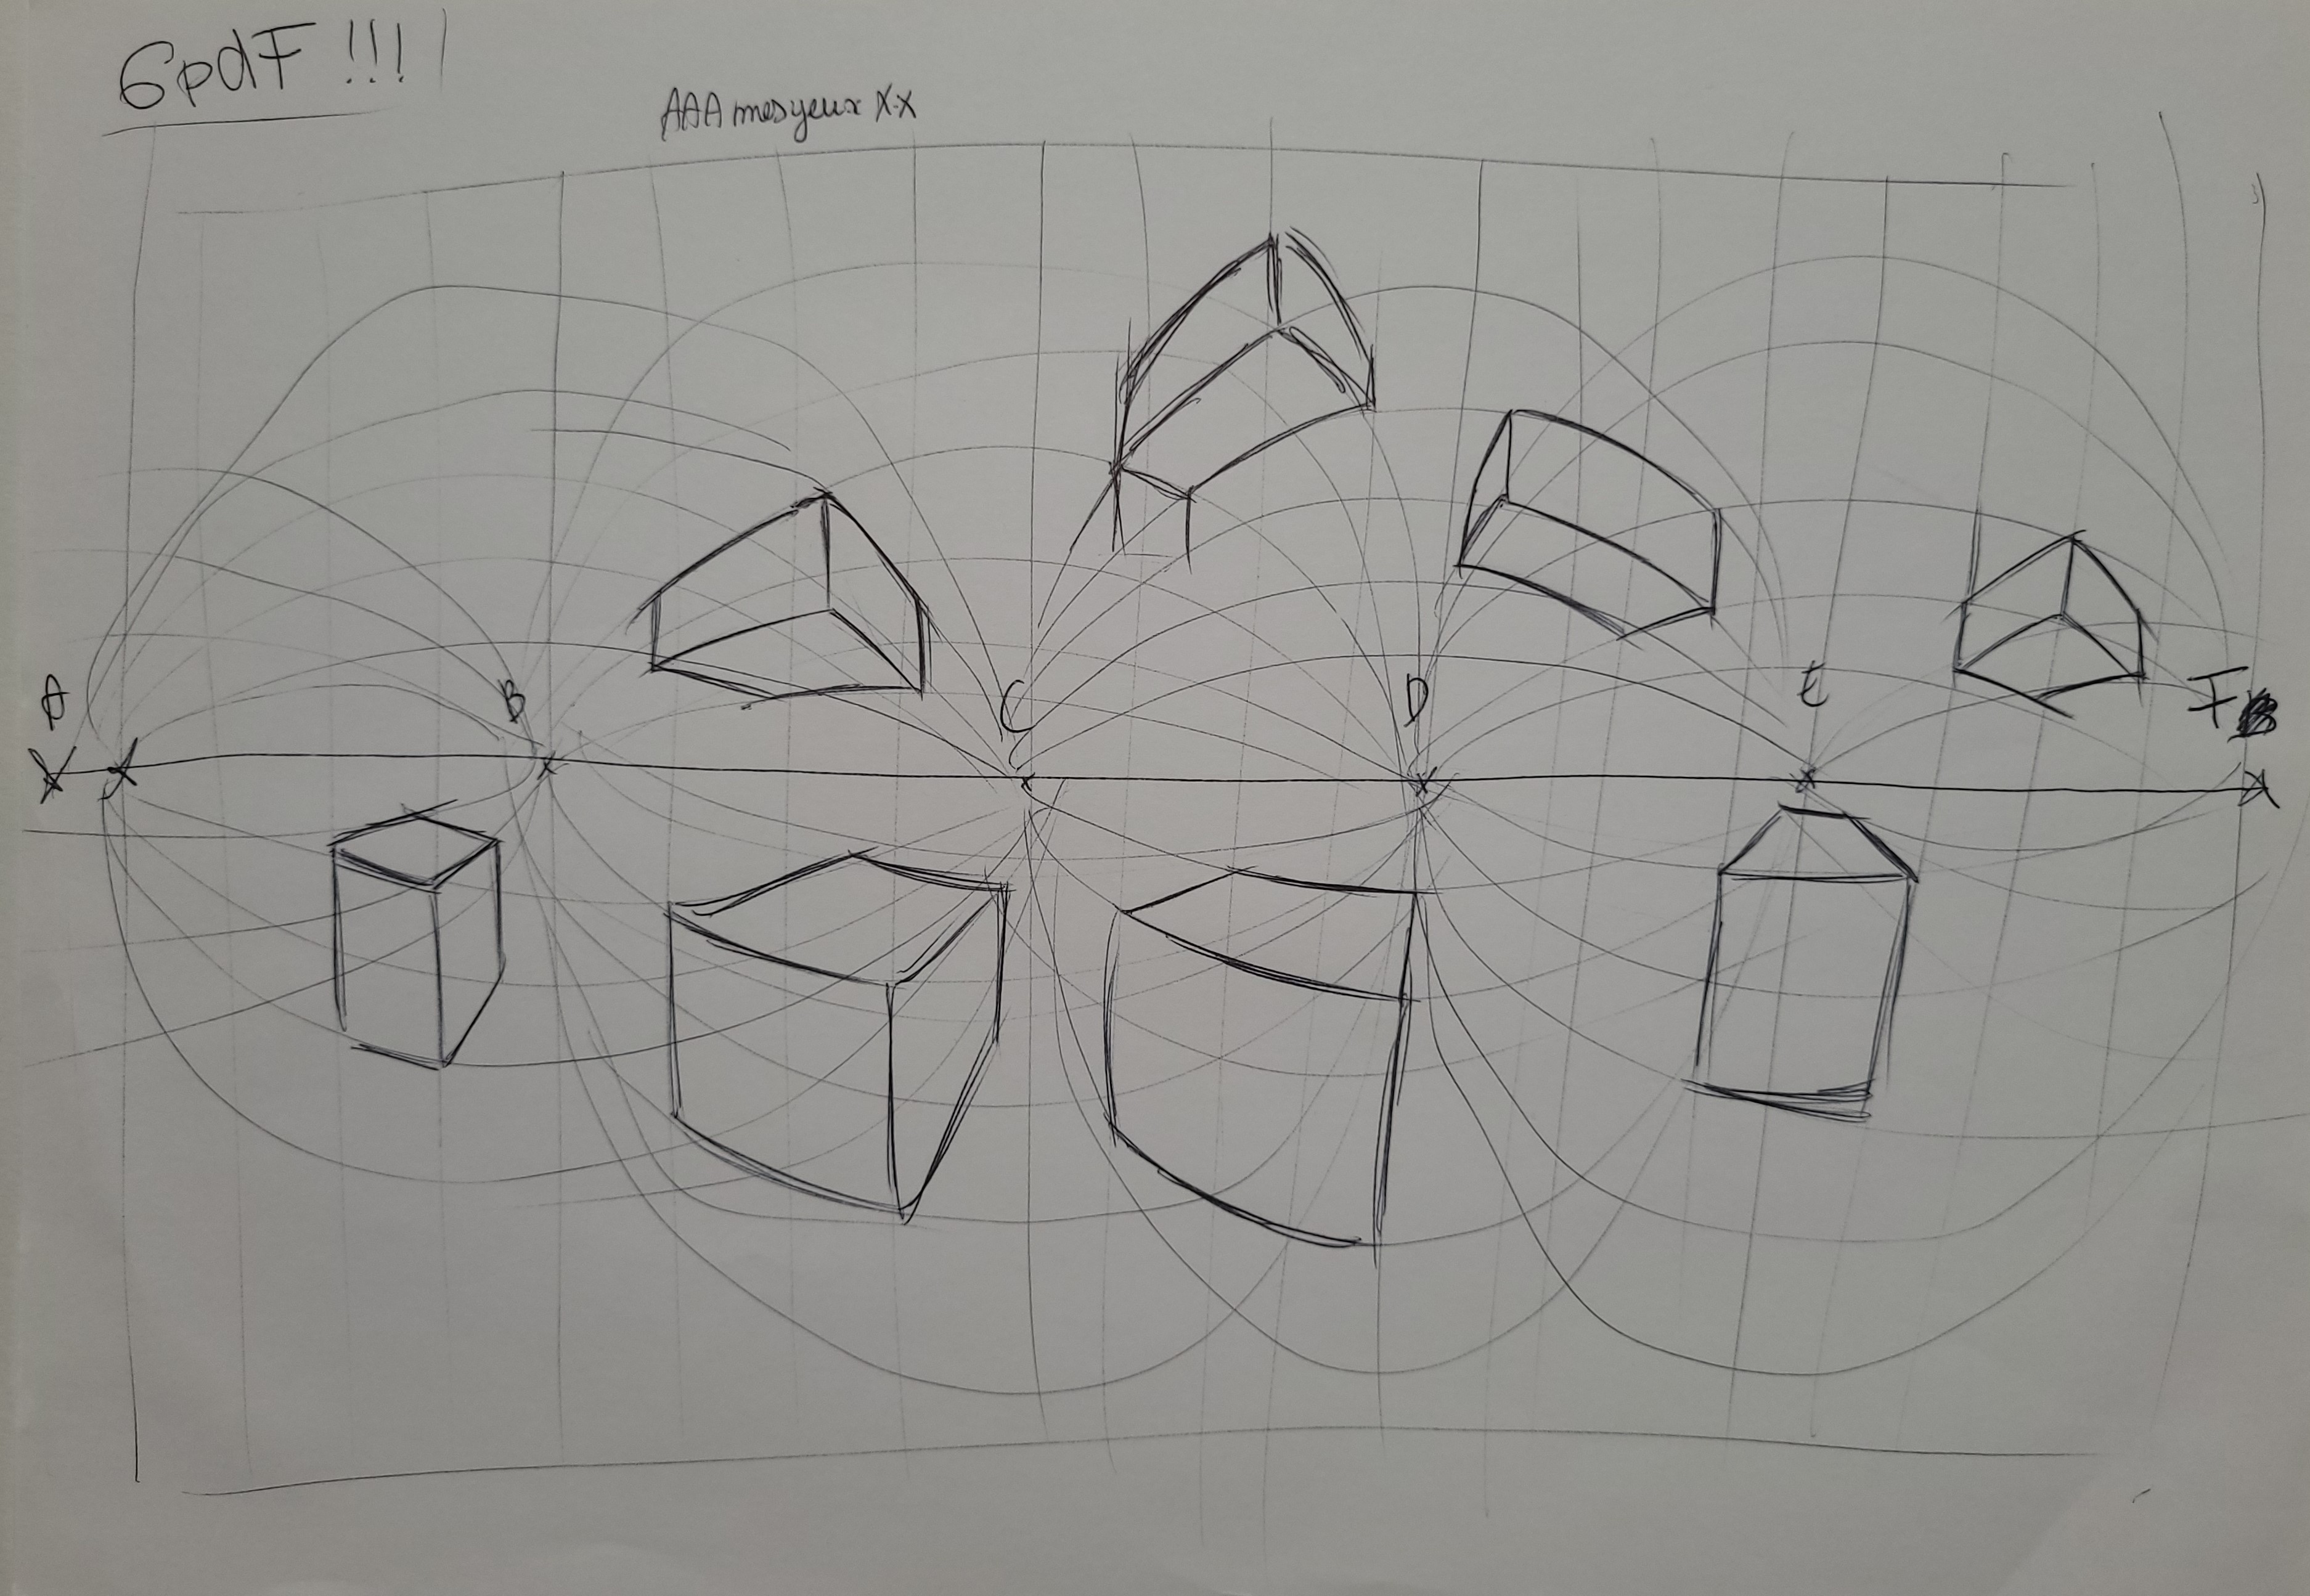 6pdF !!!
AAA mes yeux X.X
A B C D E F